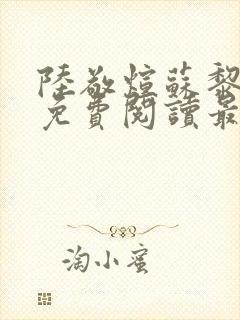 陸敬煊蘇黎
免費閱讀最
淘小蜜